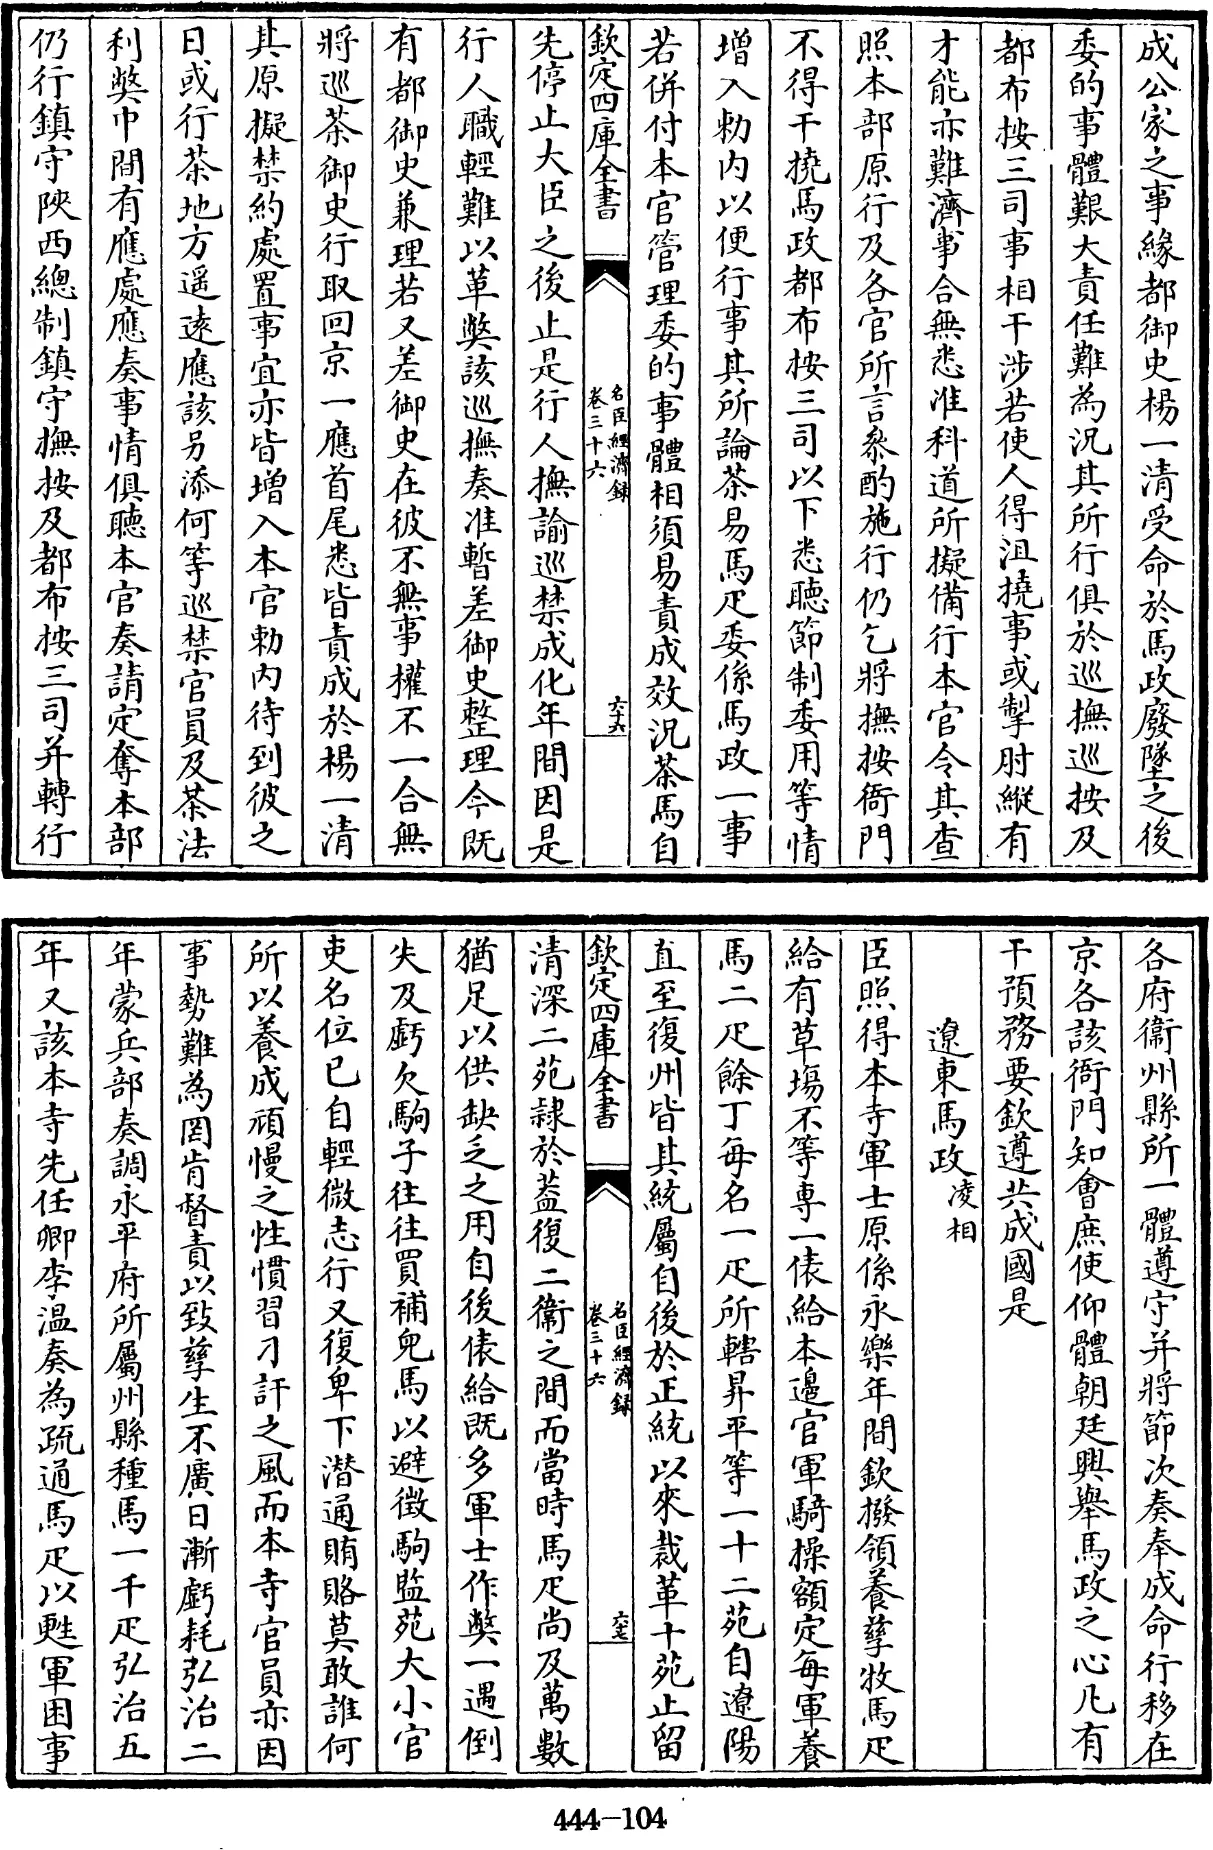 成公家之事緣都御史楊一清受命於馬政廢墜之後
委的事體艱大責任難為況其所行俱於巡撫巡按及
都布按三司事相干涉若使人得沮撓事或掣肘縱有
才能亦難濟事合無悉准科道所擬備行本官令其查
照本部原行及各官所言叅酌施行仍乞將撫按衙門
不得干撓馬政都布按三司以下悉聽節制委用等情
增入勅内以便行事其所論茶易馬疋委係馬政一事
若併付本官管理委的事體相須易責成效況茶馬自
欽定四庫全書 名臣經濟録 卷三十六 六十六
先停止大臣之後止是行人撫諭巡禁成化年間因是
行人職輕難以革獘該巡撫奏准暫差御史整理今既
有都御史兼理若又差御史在彼不無事權不一合無
將巡茶御史行取回京一應首尾悉皆責成於楊一清
其原擬禁約處置事宜亦皆增入本官勅内待到彼之
日或行茶地方遥遠應該另添何等巡禁官員及茶法
利獘中間有應處應奏事情俱聽本官奏請定奪本部
仍行鎮守陜西總制鎮守撫按及都布按三司并轉行
各府衛州縣所一體遵守并將節次奏奉成命行移在
京各該衙門知會庶使仰體朝廷興舉馬政之心凡有
干預務要欽遵共成國是
遼東馬政凌相
臣照得本寺軍士原係永樂年間欽撥領養孳牧馬疋
給有草塲不等専一俵給本邊官軍騎操額定每軍養
馬二疋餘丁每名一疋所轄昇平等一十二苑自遼陽
直至復州皆其統屬自後於正統以來裁革十苑止留
欽定四庫全書 名臣經濟録 卷三十六 六十七
清深二苑隸於葢復二衛之間而當時馬疋尚及萬數
猶足以供缺乏之用自後俵給既多軍士作獘一遇倒
失及虧欠駒子往往買補兒馬以避徵駒監苑大小官
吏名位已自輕微志行又復卑下潜通賄賂莫敢誰何
所以養成頑慢之性慣習刁訐之風而本寺官員亦因
事勢難為罔肯督責以致孳生不廣日漸虧耗弘治二
年蒙兵部奏調永平府所屬州縣種馬一千疋弘治五
年又該本寺先任卿李溫奏為疏通馬疋以甦軍困事
444-104